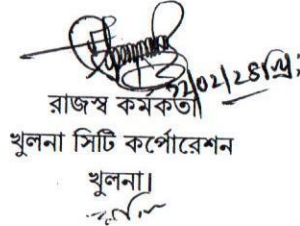 ২২/০২/২৪ খ্রি:
রাজস্ব কর্মকর্তা
খুলনা সিটি কর্পোরেশন
খুলনা।